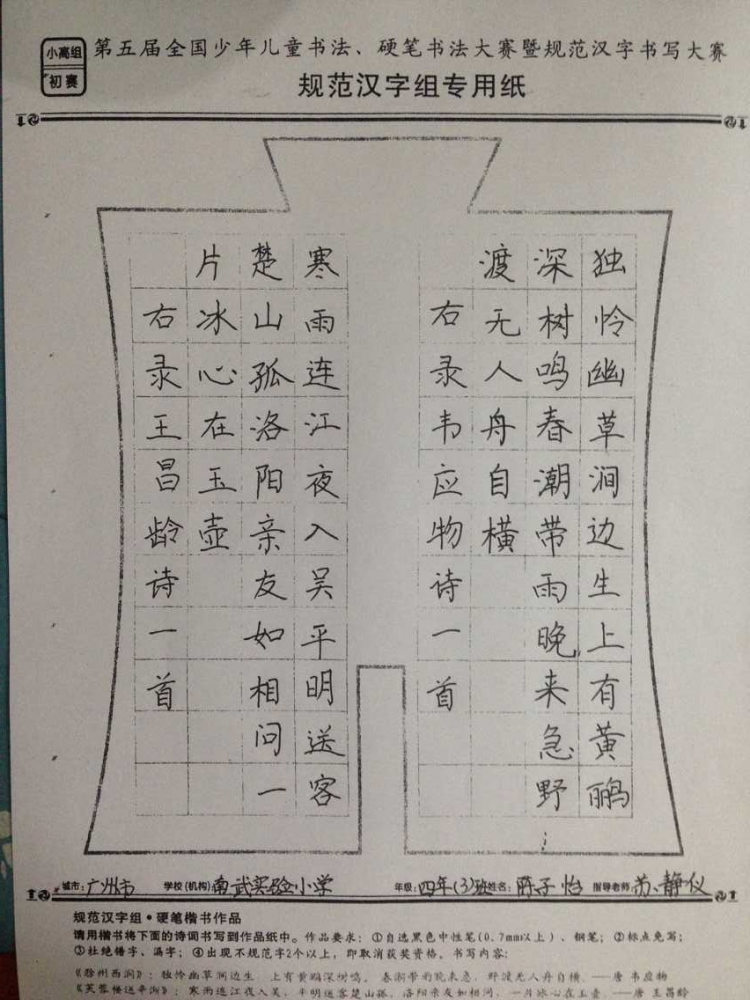 小高组
初赛
第五届全国少年儿童书法、硬笔书法大赛暨规范汉字书写大赛
规范汉字组专用纸
独怜幽草涧边生上有黄鹂
深树鸣春潮带雨晚来急野
渡无人舟自横
右录韦应物诗一首
寒雨连江夜入吴平明送客
楚山孤洛阳亲友如相问一
片冰心在玉壶
右录王昌龄诗一首
城市：广州市 学校(机构)南武实验小学 年级：四年(3)班 姓名：陈子怡 指导老师：苏静仪
规范汉字组·硬笔楷书作品
请用楷书将下面的诗词书写到作品纸中。作品要求：①自选黑色中性笔(0.7mm以上)、钢笔；②标点免写；
③杜绝错字、漏字；④出现不规范字2个以上，即取消获奖资格。书写内容：
《滁州西涧》：独怜幽草涧边生，上有黄鹂深树鸣。春潮带雨晚来急，野渡无人舟自横。——唐 韦应物
《芙蓉楼送辛渐》：寒雨连江夜入吴，平明送客楚山孤。洛阳亲友如相问，一片冰心在玉壶。——唐 王昌龄